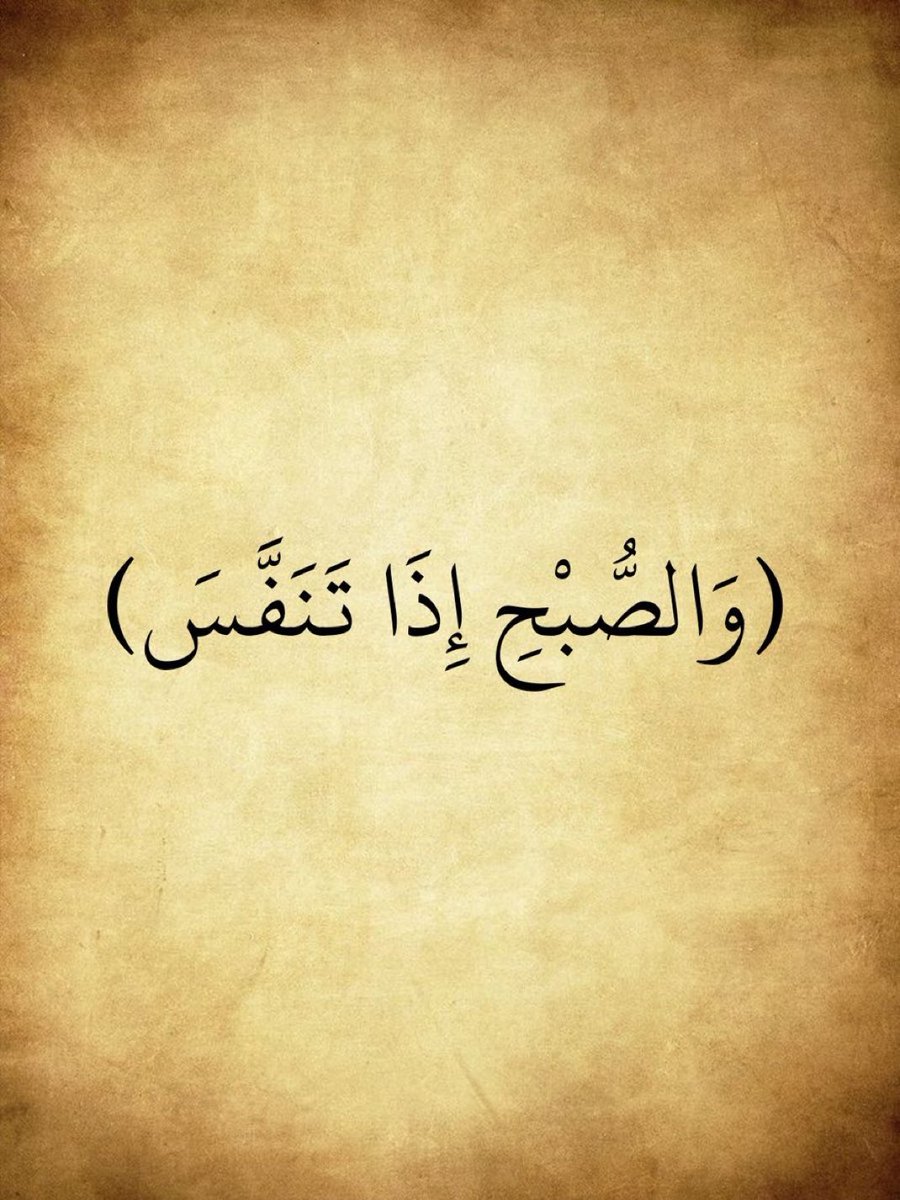 (وَالصُّبْحِ إِذَا تَنَفَّسَ)